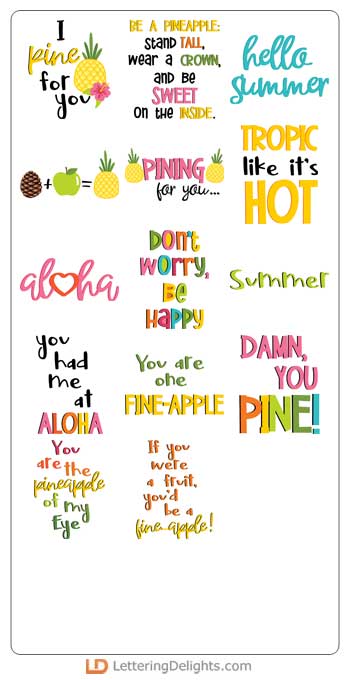 I
pine
for
you
BE A PINEAPPLE:
stand TALL,
wear a CROWN,
and be
SWEET
on the INSIDE.
hello
summer
+ =
PINING
for you...
TROPIC
like it's
HOT
aloha
DON'T
WORRY,
Be
HAPPY
Summer
you
had
me
at
ALOHA
You are
one
FINE-APPLE
DAMN,
YOU
PINE!
You
are the
pineapple
of my
Eye
If you
were
a fruit,
you'd
be a
fine apple!
LD LetteringDelights.com